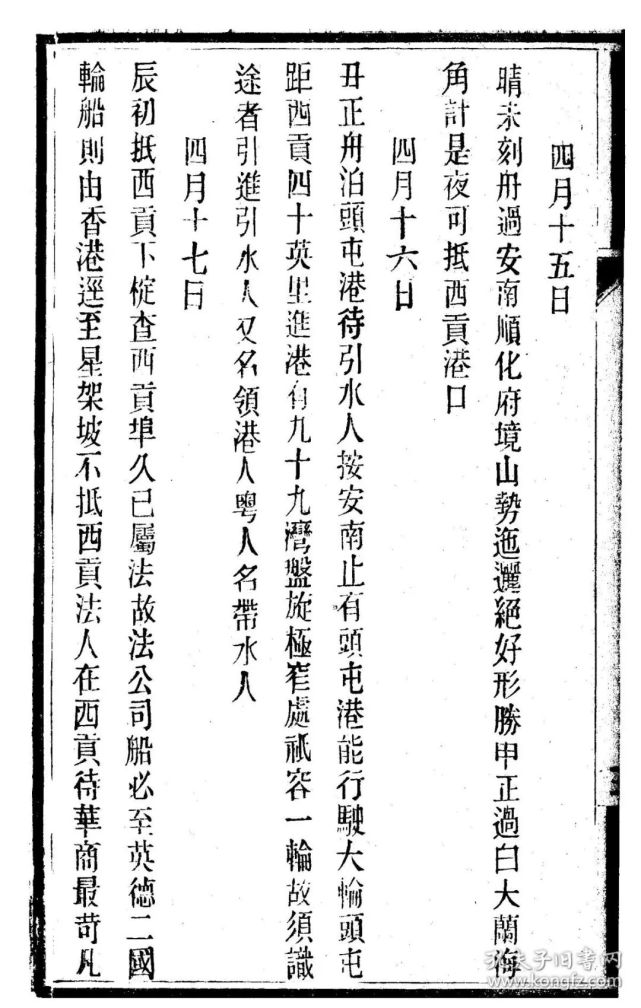 四月十五日
晴未刻舟過安南順化府境山勢迤邐絕好形勝甲正過白大蘭海
角計是夜可抵西貢港口
四月十六日
丑正舟泊頭屯港待引水人按安南止有頭屯港能行駛大輪頭屯
距西貢四十英里進港有九十九灣盤旋極窄處祇容一輪故須識
途者引進引水人又名領港人粵人名帶水人
四月十七日
辰初抵西貢下椗查西貢埠久已屬法故法公司船必至英德二國
輪船則由香港逕至星架坡不抵西貢法人在西貢待華商最苛凡
孔夫子旧书网
www.kongfz.com